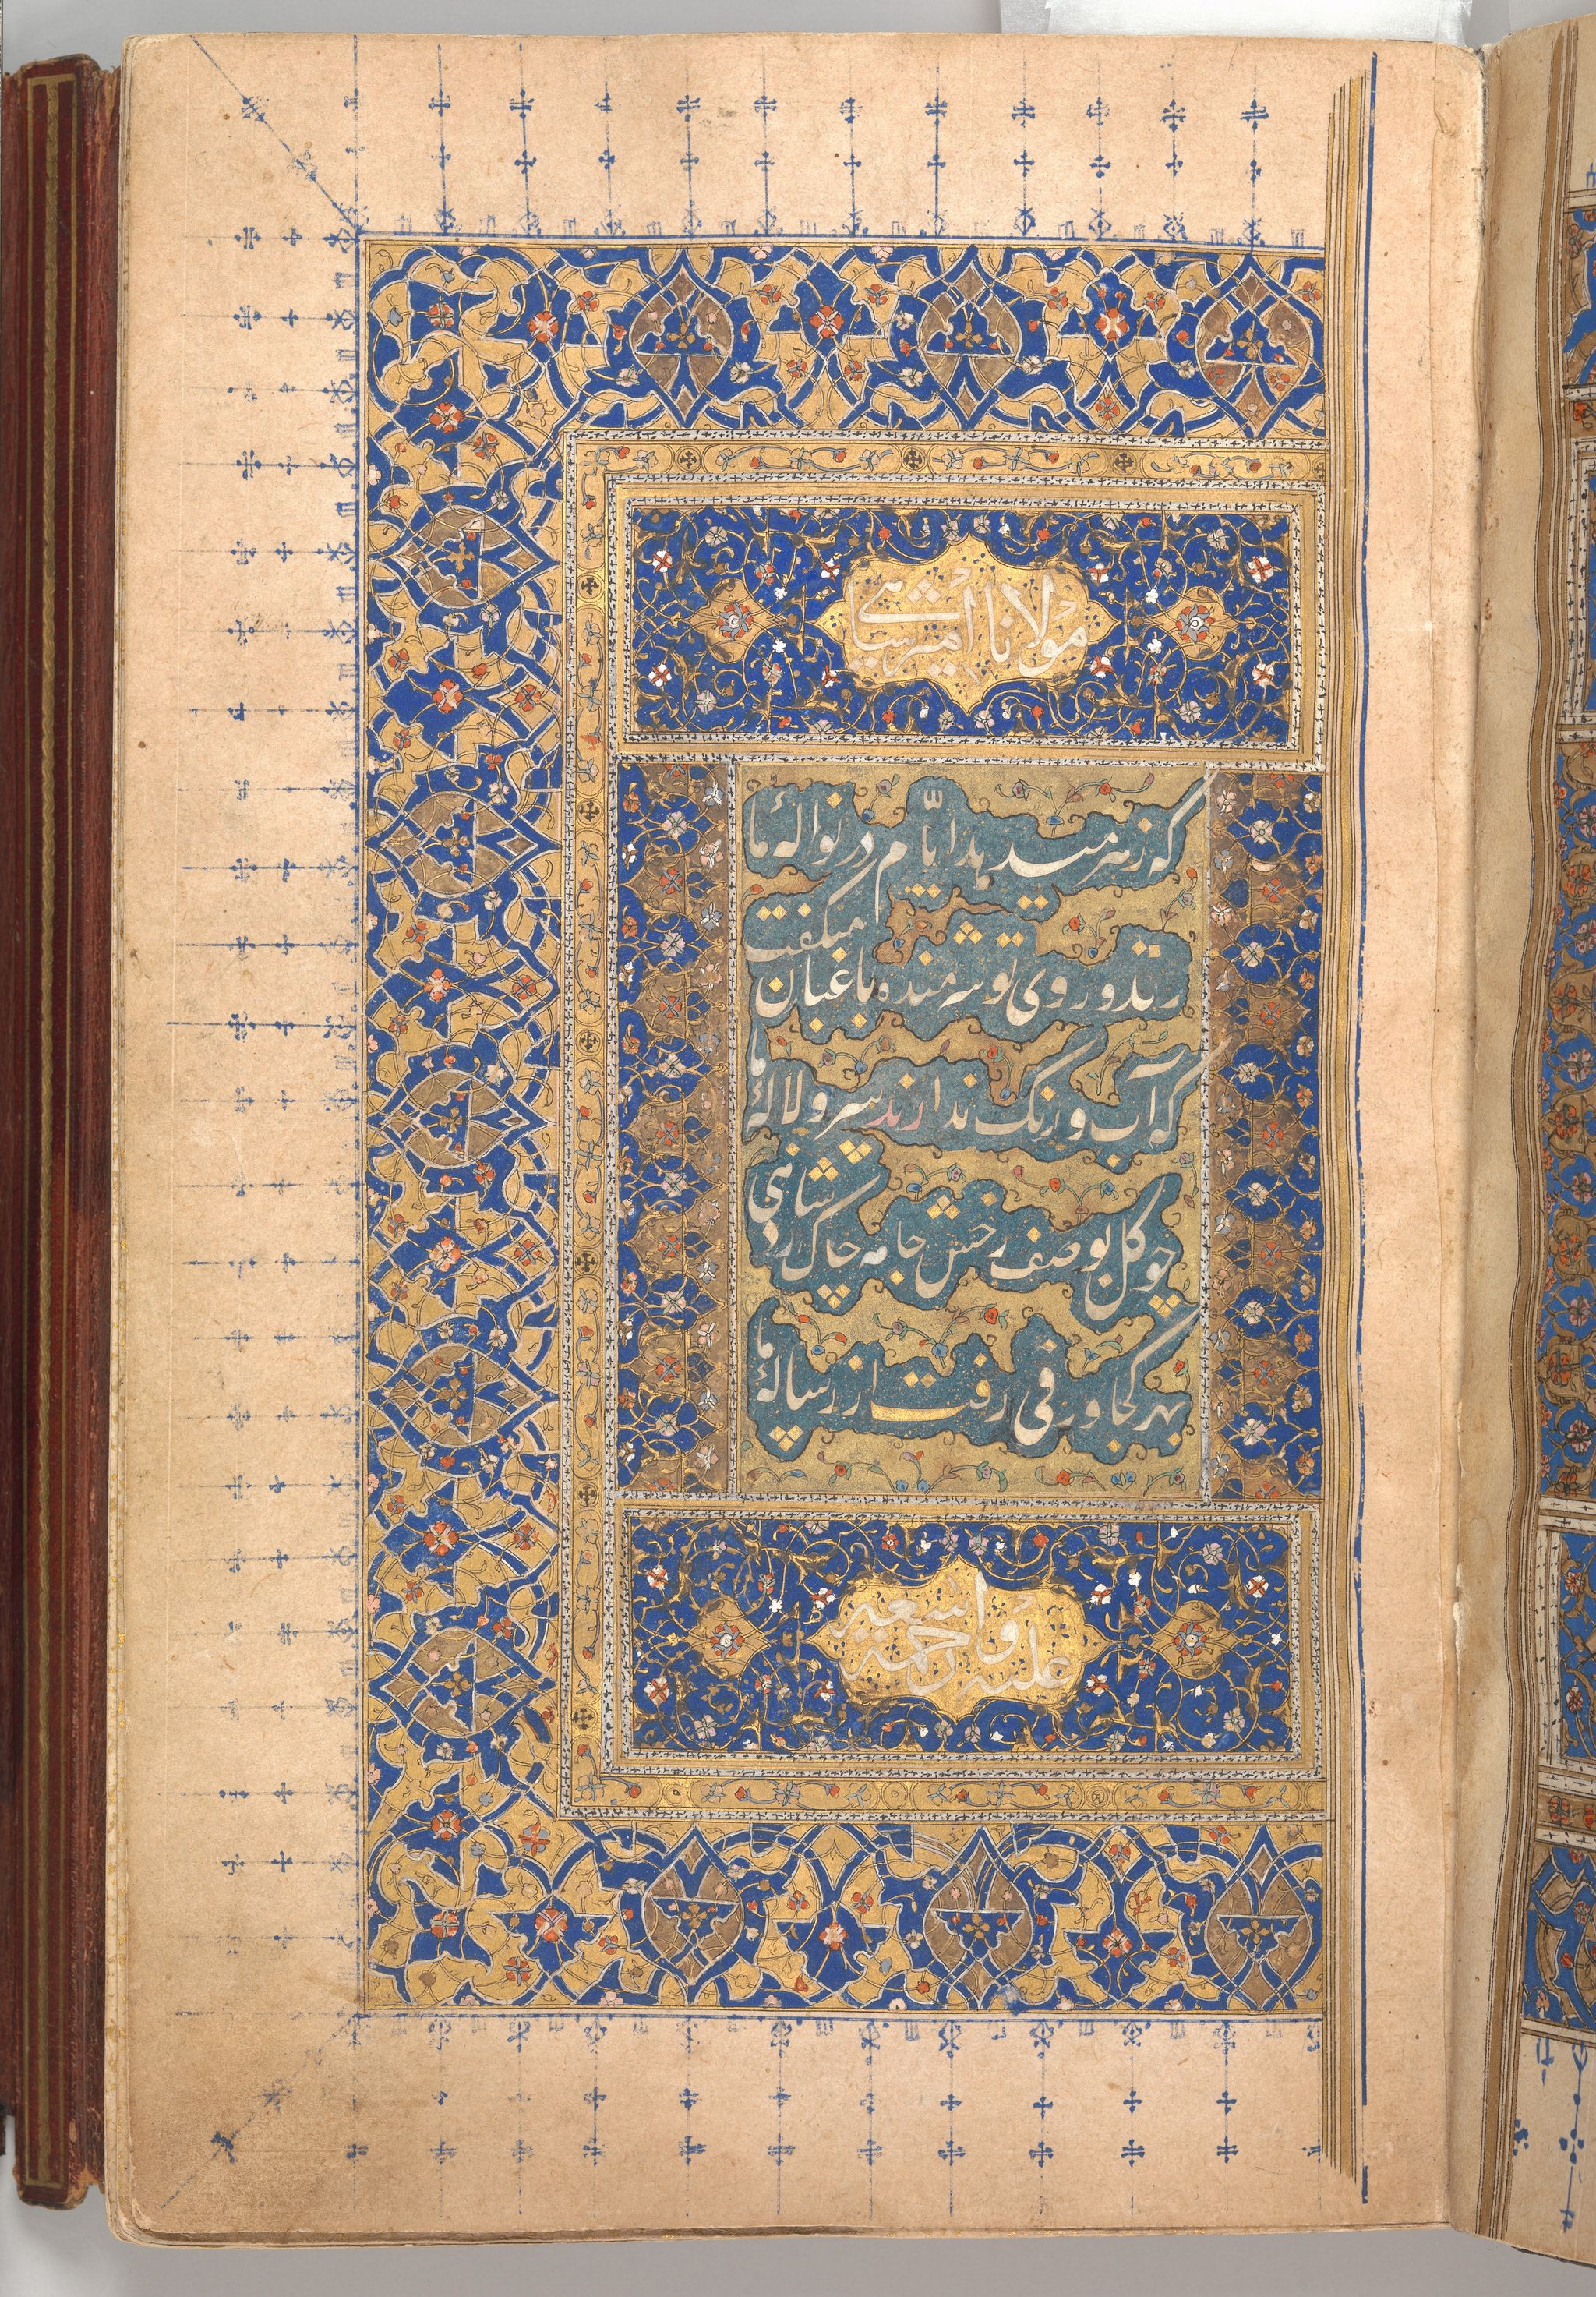 مولانا امیر شاهی
که زهر میدهد ایام در نوالهٔ ما
ز قد و روی تو شرمنده باغبان میگفت
که آب و رنگ ندارند سرو و لالهٔ ما
چو گل بوصف رخش جامه چاک زد شاهی
بهر کجا ورقی رفت از رسالهٔ ما
علیه رحمة واسعه